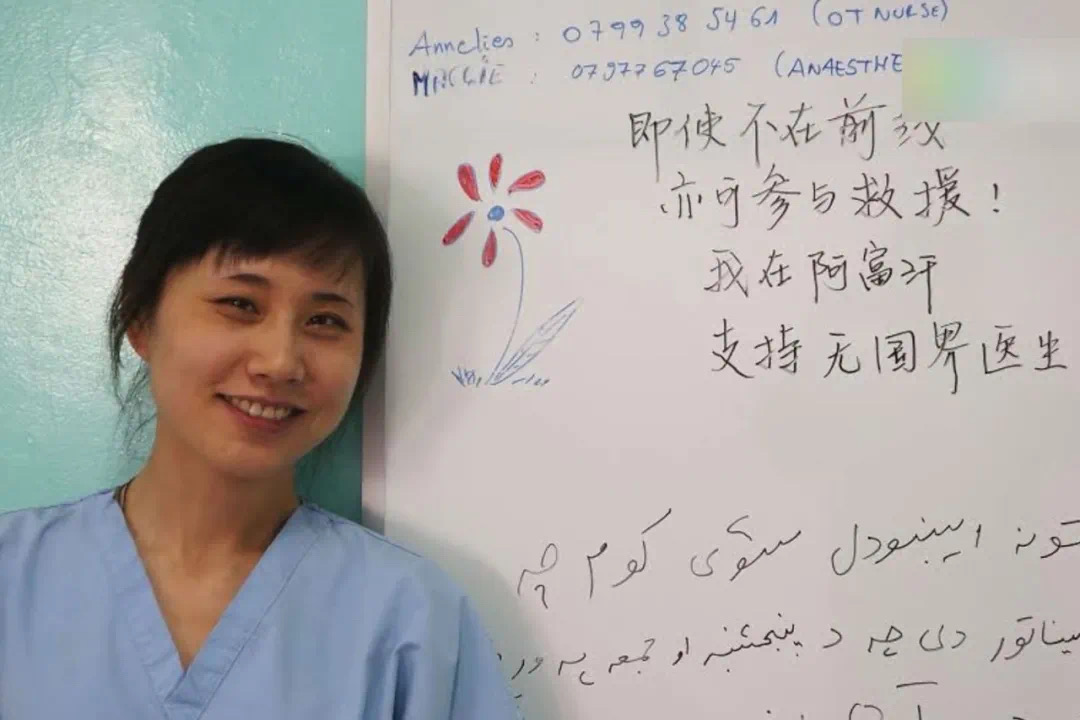 Annelies : 0799 38 54 61 (OT NURSE)
: 0797767045 (ANAESTHE
即使不在前线
亦可参与救援！
我在阿富汗
支持无国界医生
ټونه ايښودل سوي کوم چه
دي چه د پنجشنبه او جمعه په